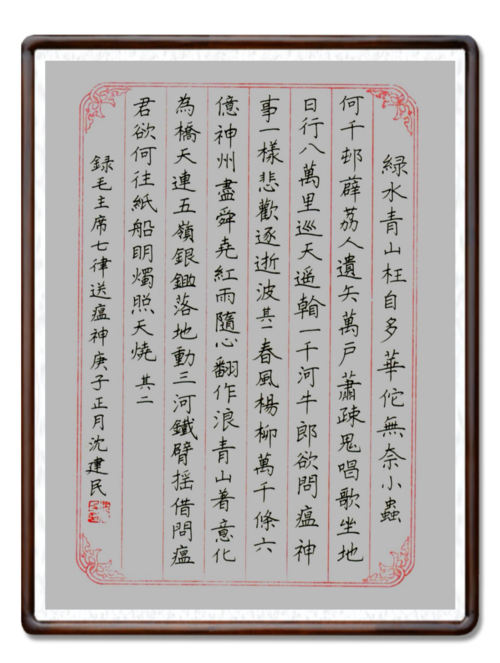 綠水青山枉自多華佗無奈小蟲
何千邨薜荔人遺矢萬戶蕭疎鬼唱歌坐地
日行八萬里巡天遥翰一千河牛郎欲問瘟神
事一樣悲歡逐逝波其一春風楊柳萬千條六
億神州盡舜尭紅雨隨心翻作浪青山着意化
為橋天連五嶺銀鋤落地動三河鐵臂摇借問瘟
君欲何往紙船明燭照天燒其二
録毛主席七律送瘟神庚子正月沈建民